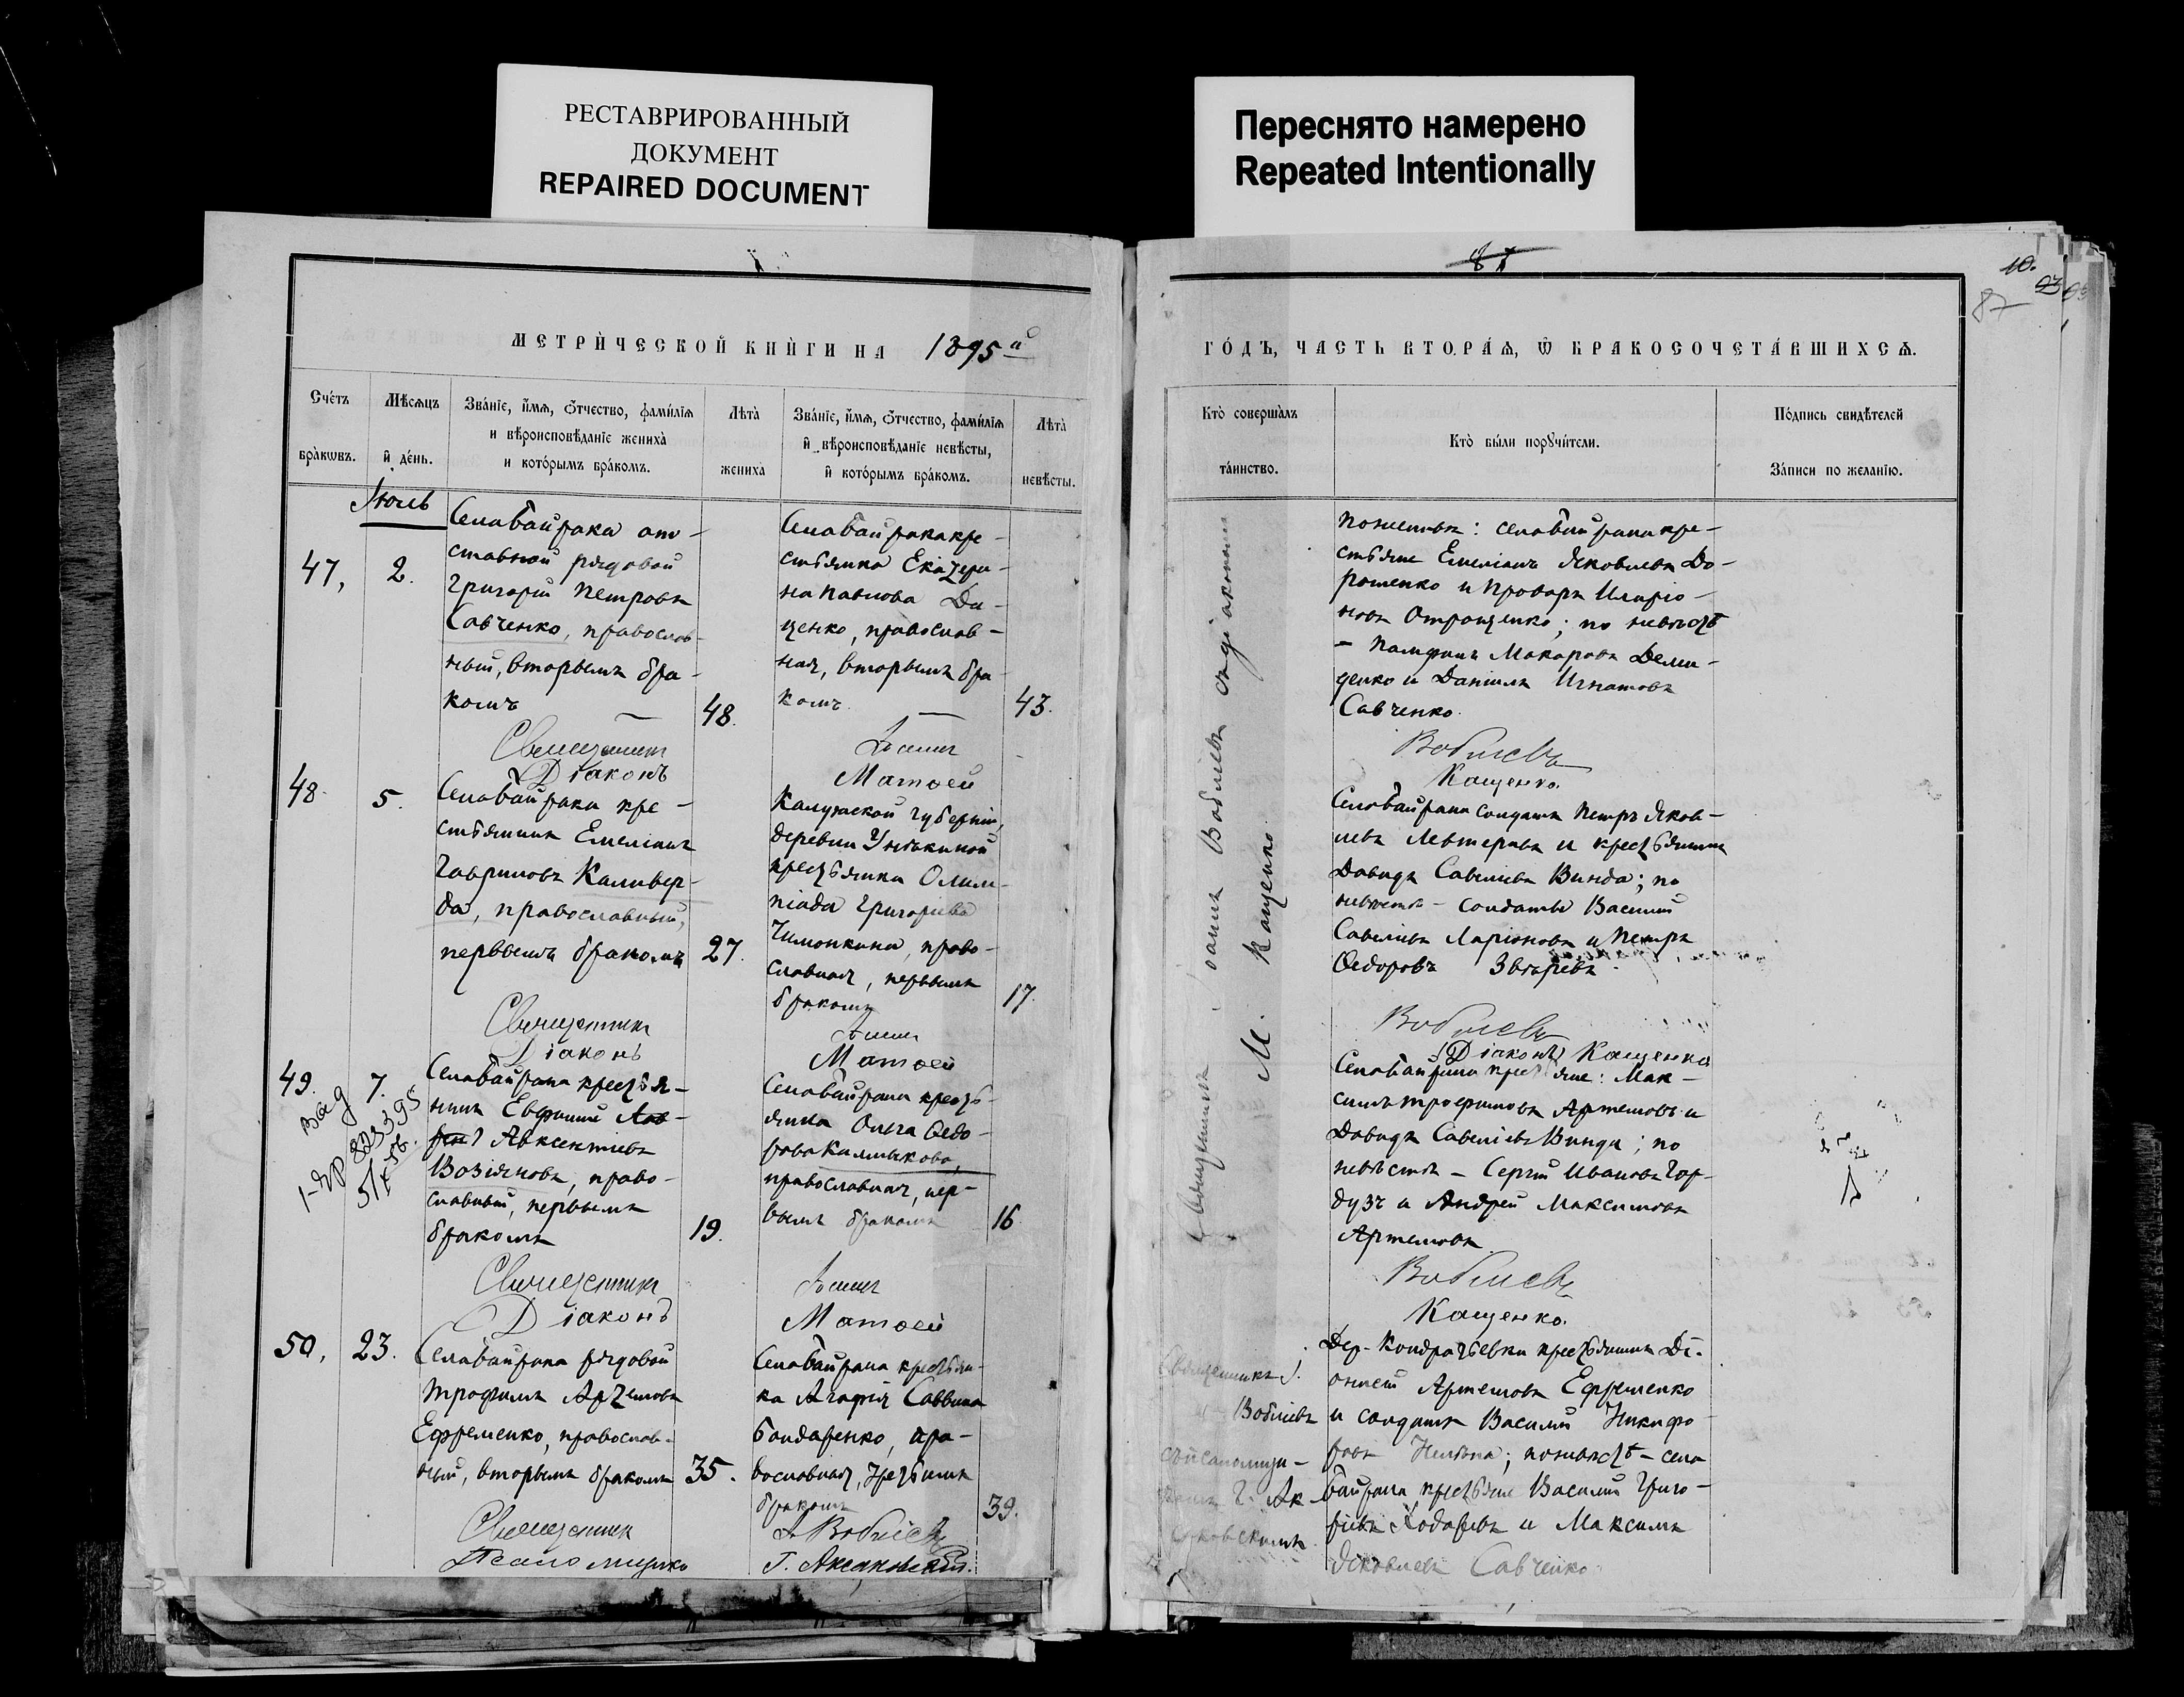 РЕСТАВРИРОВАННЫЙ
ДОКУМЕНТ
REPAIRED DOCUMENT
Переснято намерено
Repeated Intentionally
87
МЕТРИ́ЧЕСКОЙ КНИ́ГИ НА 1895 й
Сче́тъ бра́кѡвъ.
Мѣсяцъ и҆ де́нь.
Зва́нїе, и҆́мѧ, ѻ҆́тчество, фами́лїѧ
и вѣроисповѣ́данїе жениха̀
и кото́рымъ бра́комъ.
Лѣта̀ жениха̀
Зва́нїе, и҆́мѧ, ѻ҆́тчество, фами́лїѧ
и҆ вѣроисповѣ́данїе невѣ́сты,
и҆ кото́рымъ бра́комъ.
Лѣта̀ невѣ́сты.
Іюль
47,
2.
Села Байрака от-
ставной рядовой
Григорій Петровъ
Савченко, православ-
ный, вторымъ бра-
комъ
48.
Села Байрака кре-
стьянка Екатери-
на Павлова
ценко, православ-
ная, вторымъ бра-
комъ
43.
Священникъ Іоаннъ
Діаконъ Матѳей
48.
5.
Села Байрака кре-
стьянинъ Емеліанъ
Гавриловъ Каливер-
да, православный,
первымъ бракомъ
27.
Калужской губерніи,
деревни
крестьянка Олим-
піада Григорьева
православная, первымъ
бракомъ
17.
Священникъ Іоаннъ
Діаконъ Матѳей
49.
7.
5/X 56.
Села Байрака крестья-
нинъ Евфимій
Авксентіевъ
Возіяновъ, право-
славный, первымъ
бракомъ
19.
Села Байрака кресть-
янка Ольга Ѳедо-
рова Калмыкова,
православная, пер-
вымъ бракомъ
16.
Священникъ Іоаннъ
Діаконъ Матѳей
50,
23.
Села Байрака рядовой
Трофимъ Артемовъ
Ефременко, православ-
ный, вторымъ бракомъ
35.
Села Байрака крестьян-
ка Агафія Саввина
Бондаренко, пра-
вославная, третьимъ
бракомъ
39.
Священникъ І. Воблiевъ
Псаломщикъ Г. Аксаковскій.
10.
87
ГО́ДЪ, ЧАСТЬ ВТОРА́Ѧ, Ѽ БРАКОСОЧЕТА́ВШИХСѦ.
Кто̀ соверша̀лъ та́инство.
Кто̀ бы́ли порꙋчи́тели.
По́дпись свидѣ́телей За́писи по жела́нїю.
Священникъ Іоаннъ Воблiевъ съ діакономъ
М. Кащенко.
По женихѣ: села Байрака кре-
стьяне Емеліанъ Яковлевъ До-
рошенко и Прохоръ Иларіо-
новъ Отрощенко; по невѣстѣ
– Памфилъ Макаровъ Деми-
денко и Даніилъ Игнатовъ
Савченко.
Воблiевъ
Кащенко.
Села Байрака солдатъ Петръ Яков-
левъ Левтеровъ и крестьянинъ
Давидъ Савеліевъ Винда; по
невѣстѣ – солдаты Василій
Савеліевъ Ларіоновъ и Петръ
Ѳедоровъ Звѣревъ.
Воблiевъ
Діаконъ Кащенко
Села Байрака крестьяне: Мак-
симъ Трофимовъ Артемовъ и
Давидъ Савеліевъ Винда; по
невѣстѣ – Сергій Ивановъ Гор-
дузъ и Андрей Максимовъ
Артемовъ.
Воблiевъ
Кащенко.
Священникъ І.
Воблiевъ
съ псаломщи-
комъ Г. Ак-
саковскимъ
Дер. Кондратьевки крестьянинъ Ді-
онисій Артемовъ Ефременко
и солдатъ Василій Никифо-
ровъ; по невѣстѣ – села
Байрака крестьяне Василій Григо-
рьевъ Ходаревъ и Максимъ
Яковлевъ Савченко.